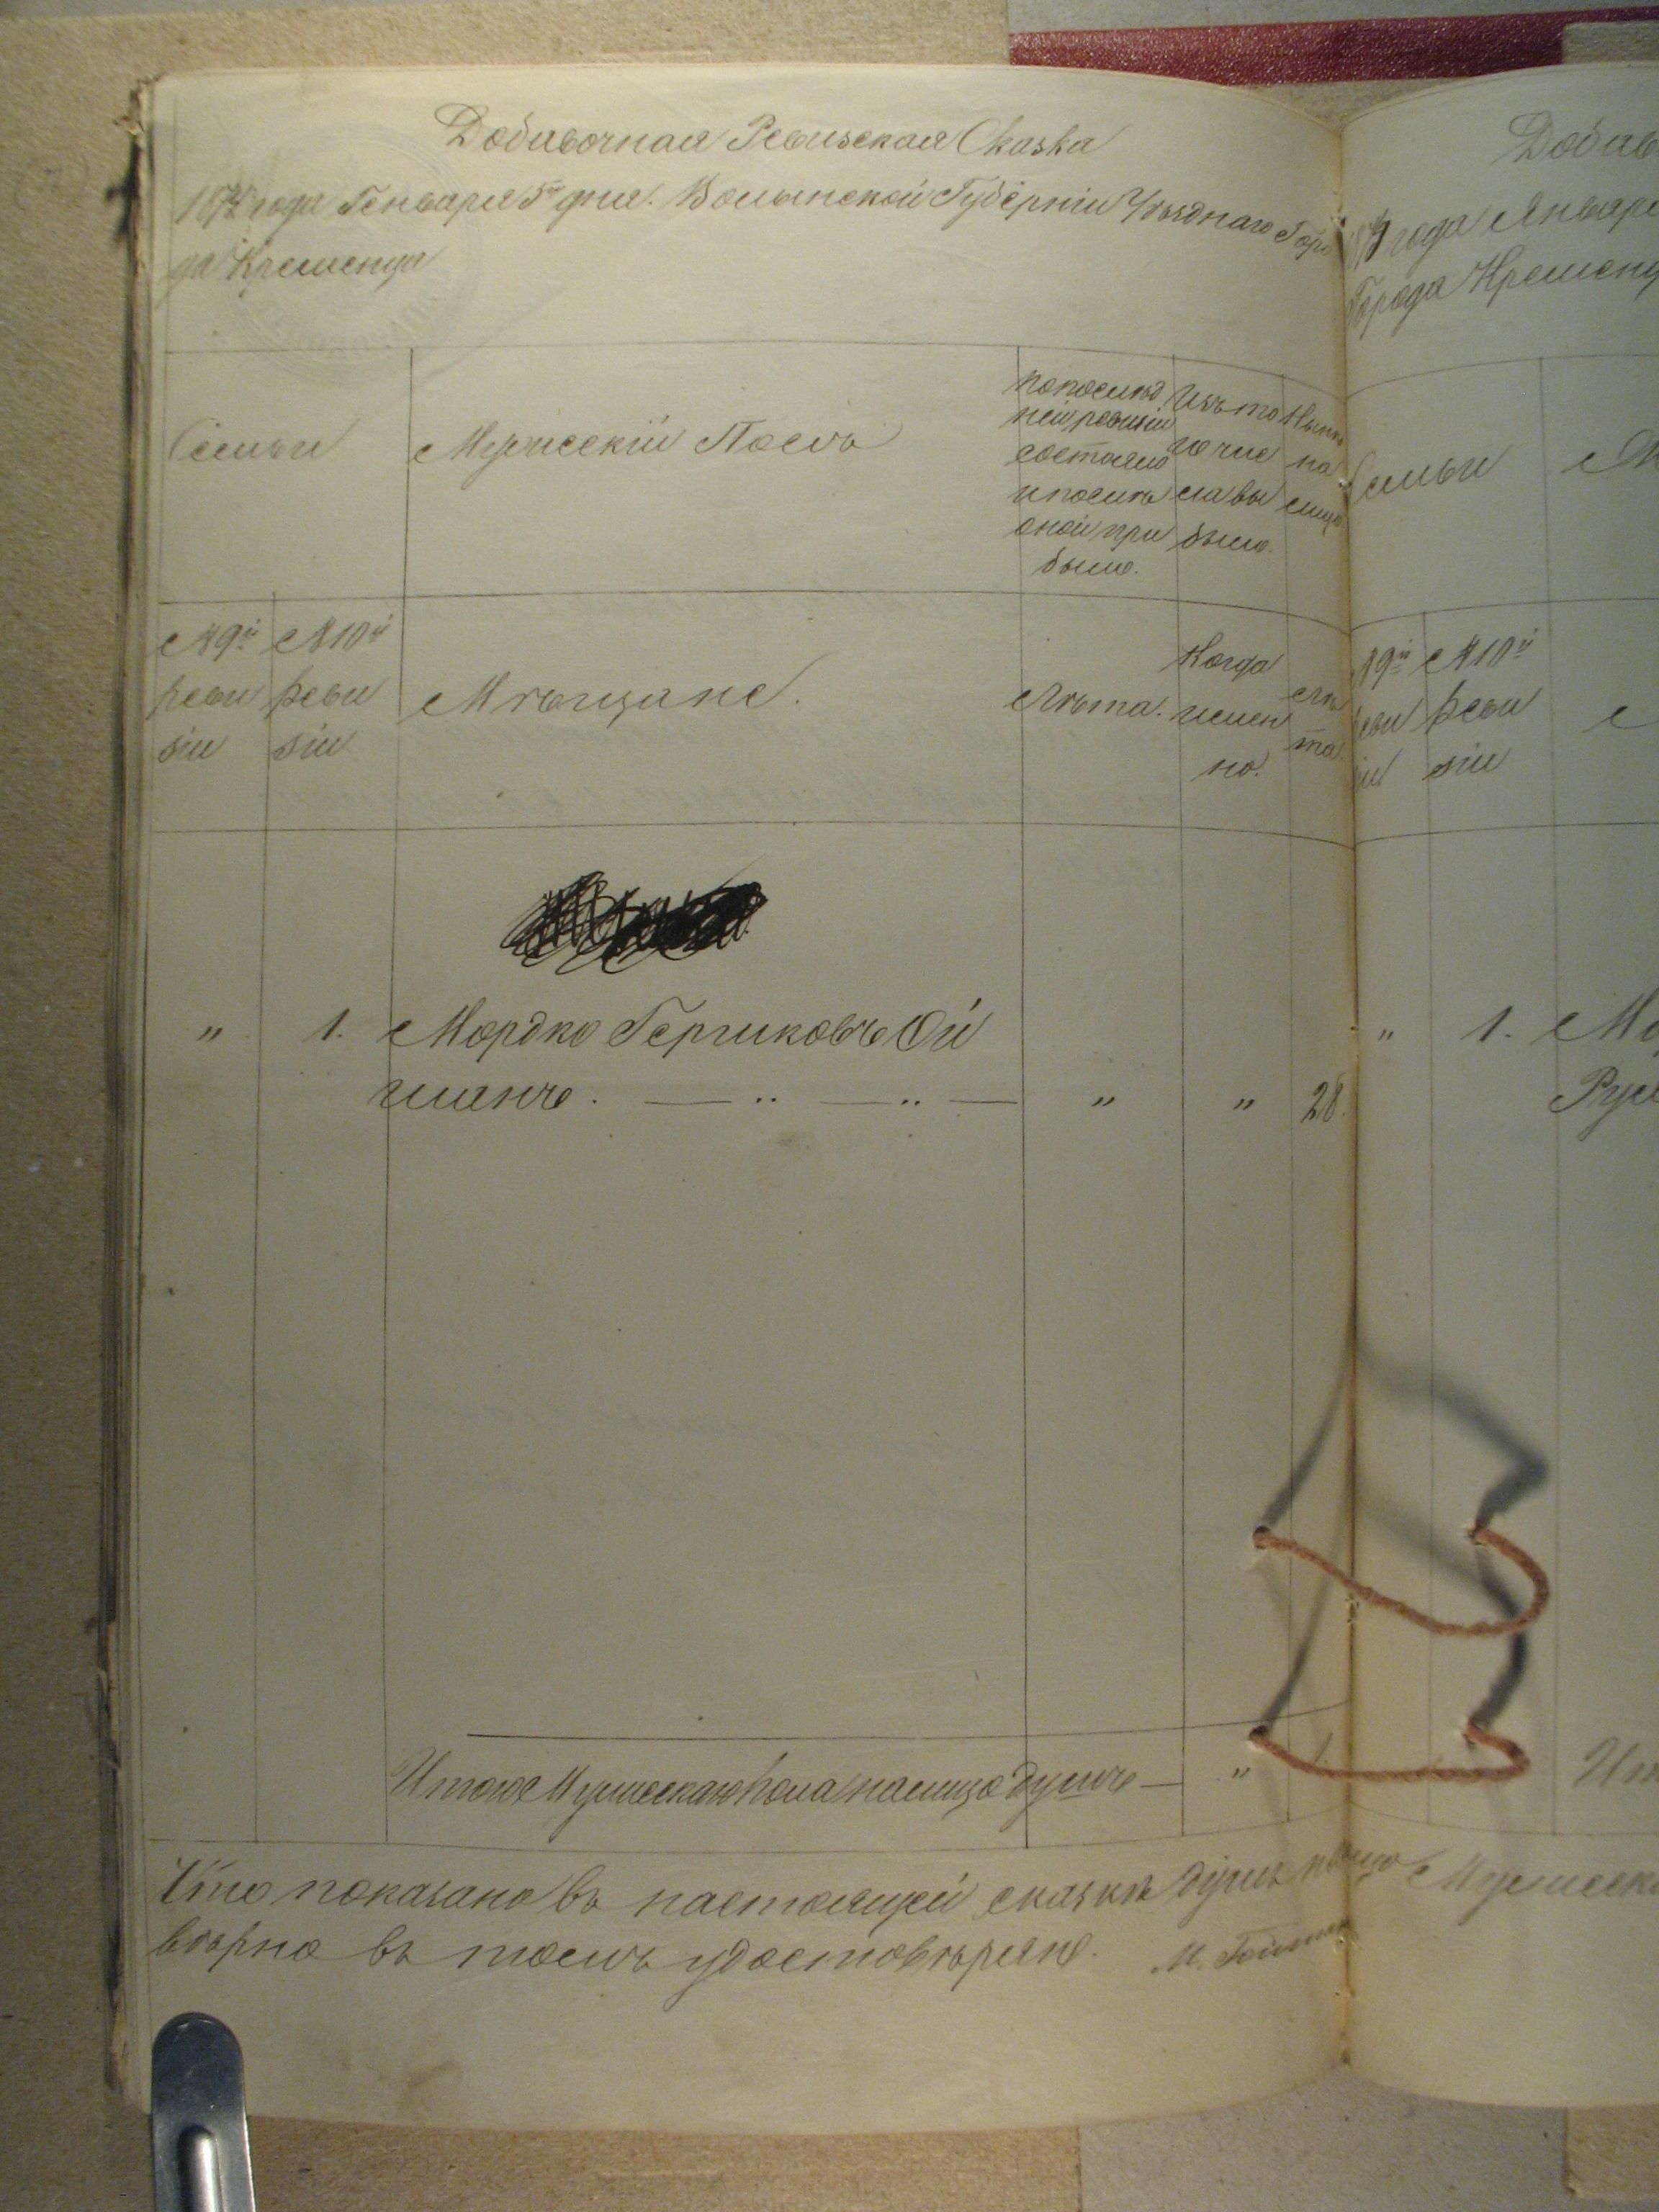 Добавочная Ревизская Сказка
года Генваря 5го дня. Волынской Губерніи Уѣзднаго Горо
да Кременца
Семьи
Мужескій Полъ
По послѣд
ней ревизіи
состояло
и послѣ
оной при
было.
Изъ то
го чис
ла вы
было.
Нынѣ
на
лицо
№ 9й
реви
зіи
№ 10й
реви
зіи
Мѣщане.
Лѣта.
Когда
имен
но.
Лѣ
та.
" 1. Мордко Гершковъ Ой
шанъ. — .. — .. — " " 28.
Итого Мужескаго пола налицо душъ — " 1.
Что показано въ настоящей сказкѣ душъ налицо
вѣрно въ томъ удостовѣряю. М.
Добав
года Январ
Города Кременц
Семьи
М
№ 9й
№ 10й
реви
зіи
" 1. Мо
Ит
Мужеск